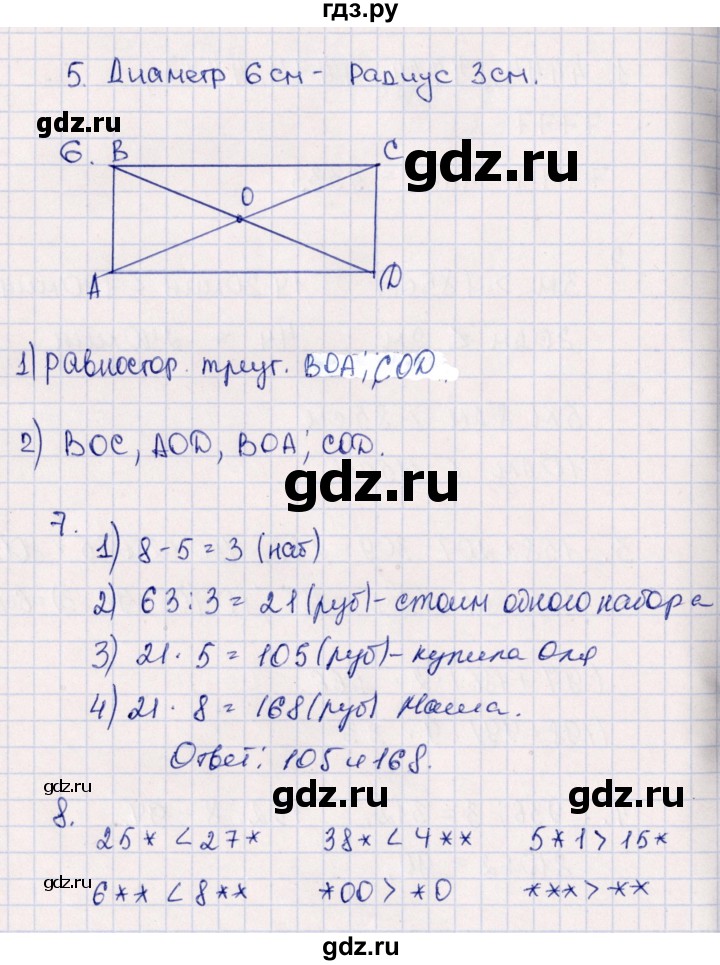 гдз.ру
5. Диаметр 6 см - Радиус 3 см.
gdz.ru
gdz.ru
6. B C
O
A D
1) равностор. треуг. BOA; COD.
2) BOC, AOD, BOA; COD.
gdz.ru
7.
1) 8 - 5 = 3 (наб)
2) 63 : 3 = 21 (руб) - стоим одного набора
3) 21 · 5 = 105 (руб) - купила Оля
4) 21 · 8 = 168 (руб) Маша.
Ответ: 105 и 168.
gdz.ru
gdz.ru
gdz.ru
8.
25* < 27* 38* < 4** 5*1 > 15*
gdz.ru
6** < 8** *00 > *0 *** > **
gdz.ru
gdz.ru